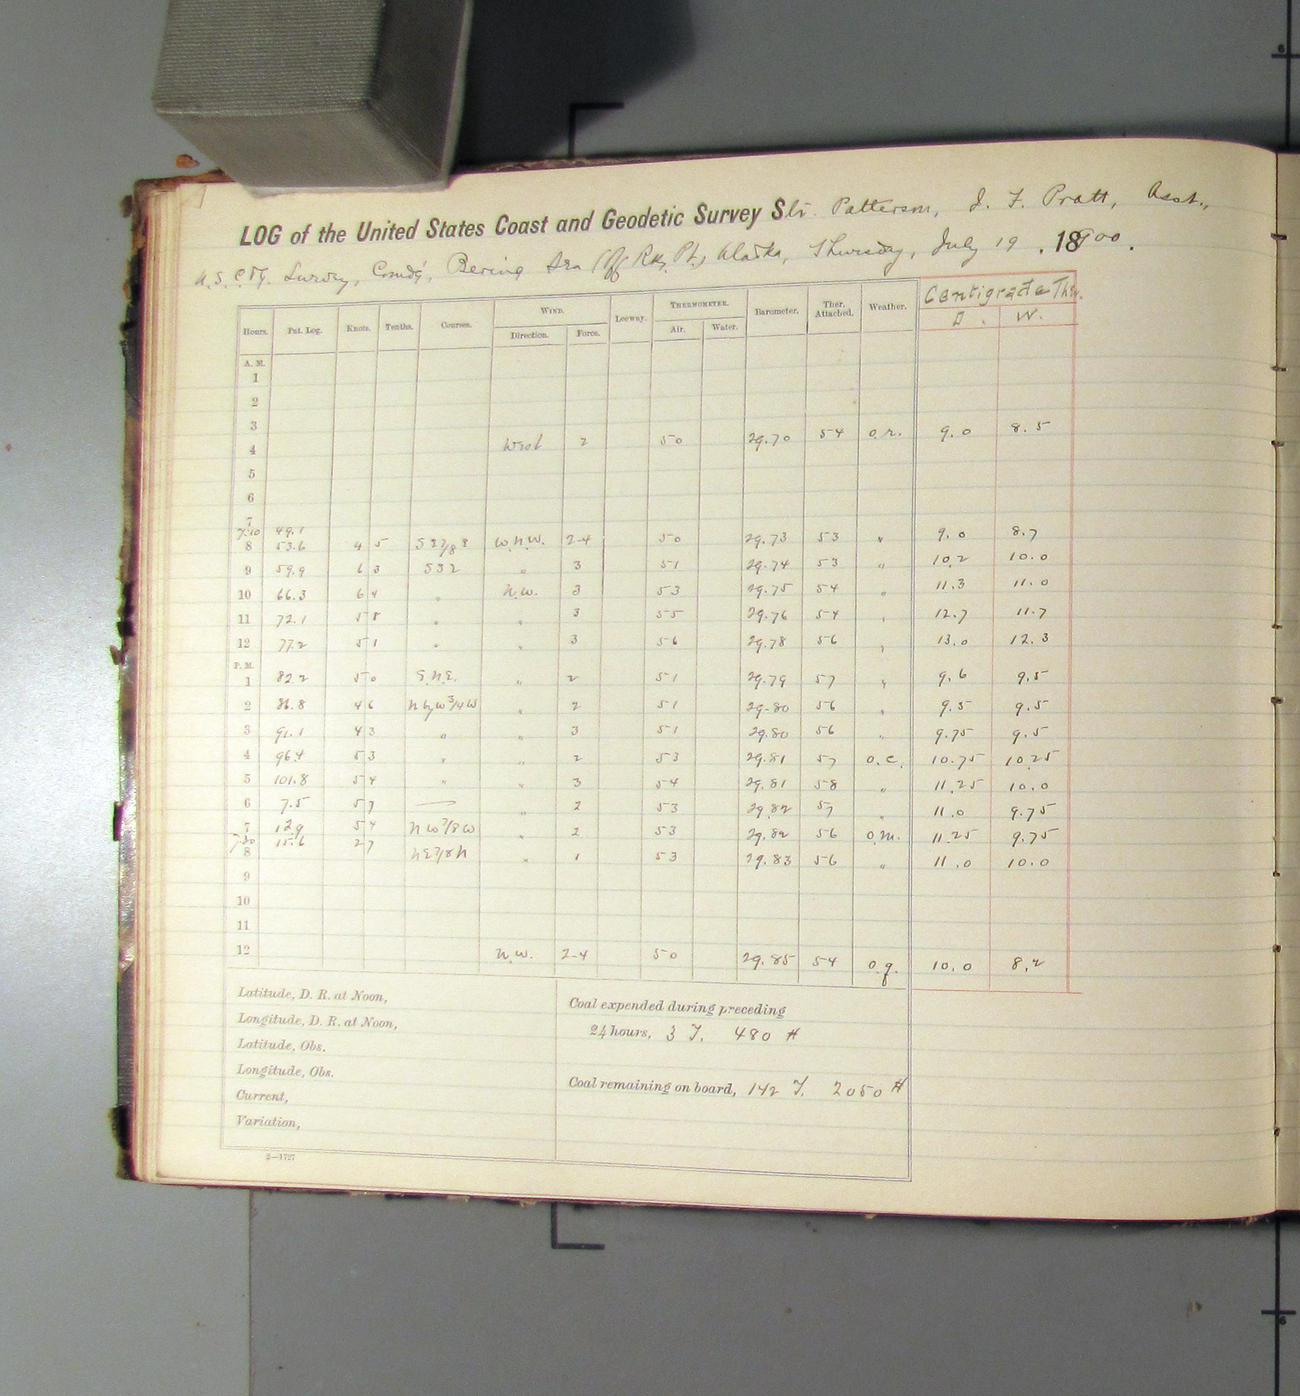 LOG of the United States Coast and Geodetic Survey Str. Patterson, J. F. Pratt, Asst.,
U.S.C.&G. Survey, Comd'g, Bering Sea (Off Rky. Pt.) Alaska, Thursday, July 19, 1900.
Hours. Pat. Log. Knots. Tenths. Courses. WIND. Leeway. THERMOMETER. Barometer. Ther. Attached. Weather. Centigrade Ther.
Direction. Force. Air. Water. D. W.
A. M.
1
2
3
4 West 2 50 29.70 54 o.r. 9.0 8.5
5
6
7
7:10 49.1
8 53.6 4 5 W.N.W. 2-4 50 29.73 53 " 9.0 8.7
9 59.9 6 3 " 3 51 29.74 53 " 10.2 10.0
10 66.3 6 4 " N.W. 3 53 29.75 54 " 11.3 11.0
11 72.1 5 8 " " 3 55 29.76 54 " 12.7 11.7
12 77.2 5 1 " " 3 56 29.78 56 " 13.0 12.3
P. M.
1 82.2 5 0 " 2 51 29.79 57 " 9.6 9.5
2 86.8 4 6 N by W 3/4 W " 2 51 29.80 56 " 9.5 9.5
3 91.1 4 3 " " 3 51 29.80 56 " 9.75 9.5
4 96.4 5 3 " " 2 53 29.81 57 o.c. 10.75 10.25
5 101.8 5 4 " " 3 54 29.81 58 " 11.25 10.0
6 7.5 5 7 — " 2 53 29.82 57 11.0 9.75
7 12.9 5 4 N W 7/8 W " 2 53 29.82 56 o.m. 11.25 9.75
7:30 15.6 2 7
8 N E 7/8 N " 1 53 29.83 56 " 11.0 10.0
9
10
11
12 N.W. 2-4 50 29.85 54 o.g. 10.0 8.2
Latitude, D. R. at Noon,
Longitude, D. R. at Noon,
Latitude, Obs.
Longitude, Obs.
Current,
Variation,
Coal expended during preceding
24 hours, 3 T. 480 #
Coal remaining on board, 142 T. 2050 #
3—1727